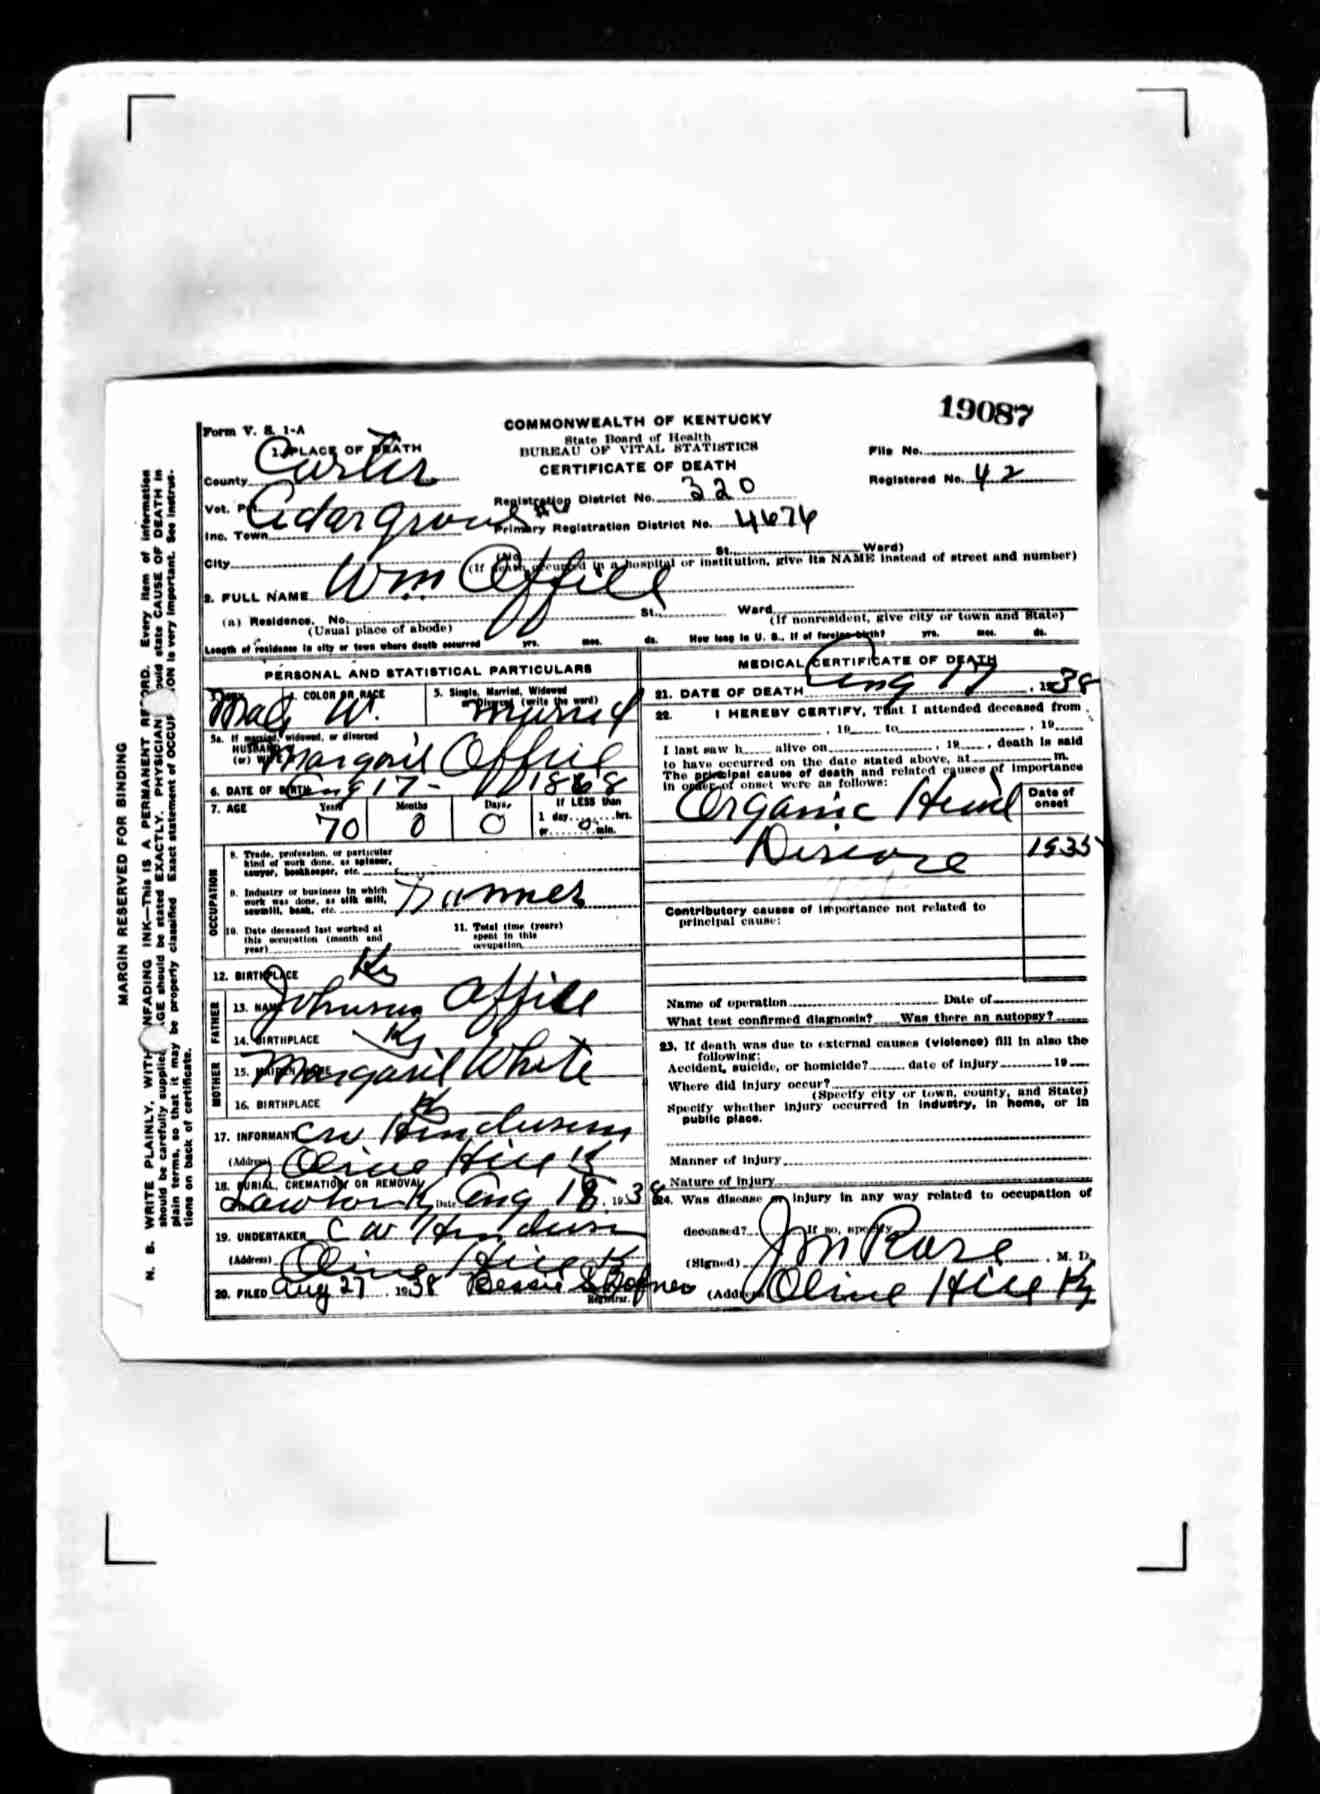 19087
Form V. S. 1-A
COMMONWEALTH OF KENTUCKY
State Board of Health
BUREAU OF VITAL STATISTICS
CERTIFICATE OF DEATH
File No.
Registered No. 42
1. PLACE OF DEATH
County Carter
Registration District No. 320
Vot. P Cedargrove #6
Primary Registration District No. 4676
Inc. Town
City (No. St. Ward)
(If death occurred in a hospital or institution, give its NAME instead of street and number)
2. FULL NAME Wm Offill
(a) Residence. No. St. Ward
(Usual place of abode) (If nonresident, give city or town and State)
Length of residence in city or town where death occurred yrs. mos. ds. How long in U. S., if of foreign birth? yrs. mos. ds.
PERSONAL AND STATISTICAL PARTICULARS
3. SEX Male
4. COLOR OR RACE W.
5. Single, Married, Widowed or Divorced (write the word) Married
5a. If married, widowed, or divorced
HUSBAND
(or) WIFE Offill
6. DATE OF BIRTH Aug 17 - 1868
7. AGE Years 70 Months 0 Days 0 If LESS than 1 day 0 hrs. or min.
OCCUPATION
8. Trade, profession, or particular
kind of work done, as spinner,
sawyer, bookkeeper, etc.
9. Industry or business in which
work was done, as silk mill,
sawmill, bank, etc. Farmer
10. Date deceased last worked at
this occupation (month and
year)
11. Total time (years)
spent in this
occupation
12. BIRTHPLACE Ky
FATHER
13. NAME Offill
14. BIRTHPLACE Ky
MOTHER
15. MAIDEN NAME White
16. BIRTHPLACE K
17. INFORMANT CW Henderson
(Address) Olive Hill K
18. BURIAL, CREMATION OR REMOVAL
Lawton K Date Aug 18, 1938
19. UNDERTAKER C W Henderson
(Address) Olive Hill K
20. FILED Aug 27 1938 Bessie S
Registrar.
MEDICAL CERTIFICATE OF DEATH
21. DATE OF DEATH Aug 17, 1938
22. I HEREBY CERTIFY, That I attended deceased from
, 19 to , 19
I last saw h alive on , 19 , death is said
to have occurred on the date stated above, at m.
The principal cause of death and related causes of importance
in order of onset were as follows:
Date of
onset
Organic Heart
Disease 1935
Contributory causes of importance not related to
principal cause:
Name of operation Date of
What test confirmed diagnosis? Was there an autopsy?
23. If death was due to external causes (violence) fill in also the
following:
Accident, suicide, or homicide? date of injury 19
Where did injury occur?
(Specify city or town, county, and State)
Specify whether injury occurred in industry, in home, or in
public place.
Manner of injury
Nature of injury
24. Was disease or injury in any way related to occupation of
deceased? If so, specify
(Signed) J M Rose, M. D.
(Address) Olive Hill Ky
MARGIN RESERVED FOR BINDING
N. B. WRITE PLAINLY, WITH NFADING INK—This is A PERMANENT RECORD. Every item of information
should be carefully supplied. AGE should be stated EXACTLY. PHYSICIAN ould state CAUSE OF DEATH in
plain terms, so that it may be properly classified Exact statement of OCCUP ON is very important. See instruc-
tions on back of certificate.